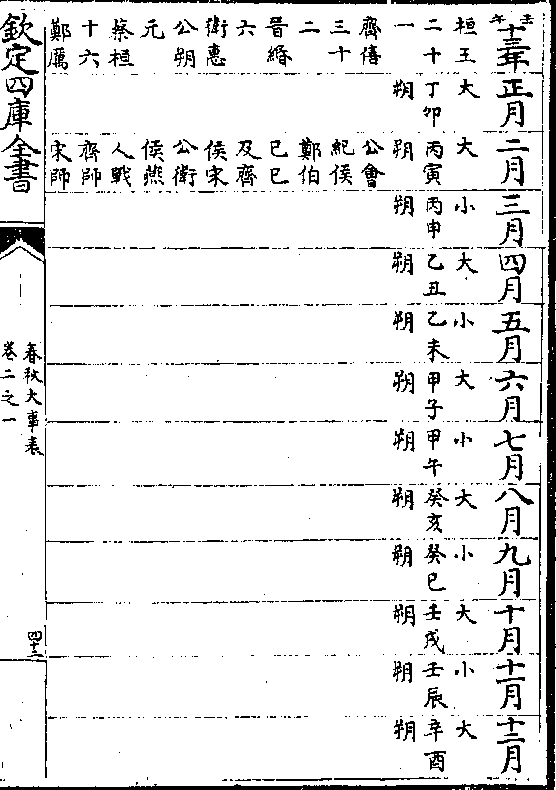 壬午
十三年
桓王
二十
一
齊僖
三十
二
晉緡
六
衛惠
公朔
元
蔡桓
十六
鄭厲
正月
大
丁卯
朔
二月
大
丙寅
朔
公會
紀侯
鄭伯
己巳
及齊
侯宋
公衛
侯燕
人戰
齊師
宋師
三月
小
丙申
朔
四月
大
乙丑
朔
五月
小
乙未
朔
六月
大
甲子
朔
七月
小
甲午
朔
八月
大
癸亥
朔
九月
小
癸巳
朔
十月
大
壬戌
朔
十一月
小
壬辰
朔
十二月
大
辛酉
朔
欽定四庫全書
春秋大事表
卷二之一
四十二